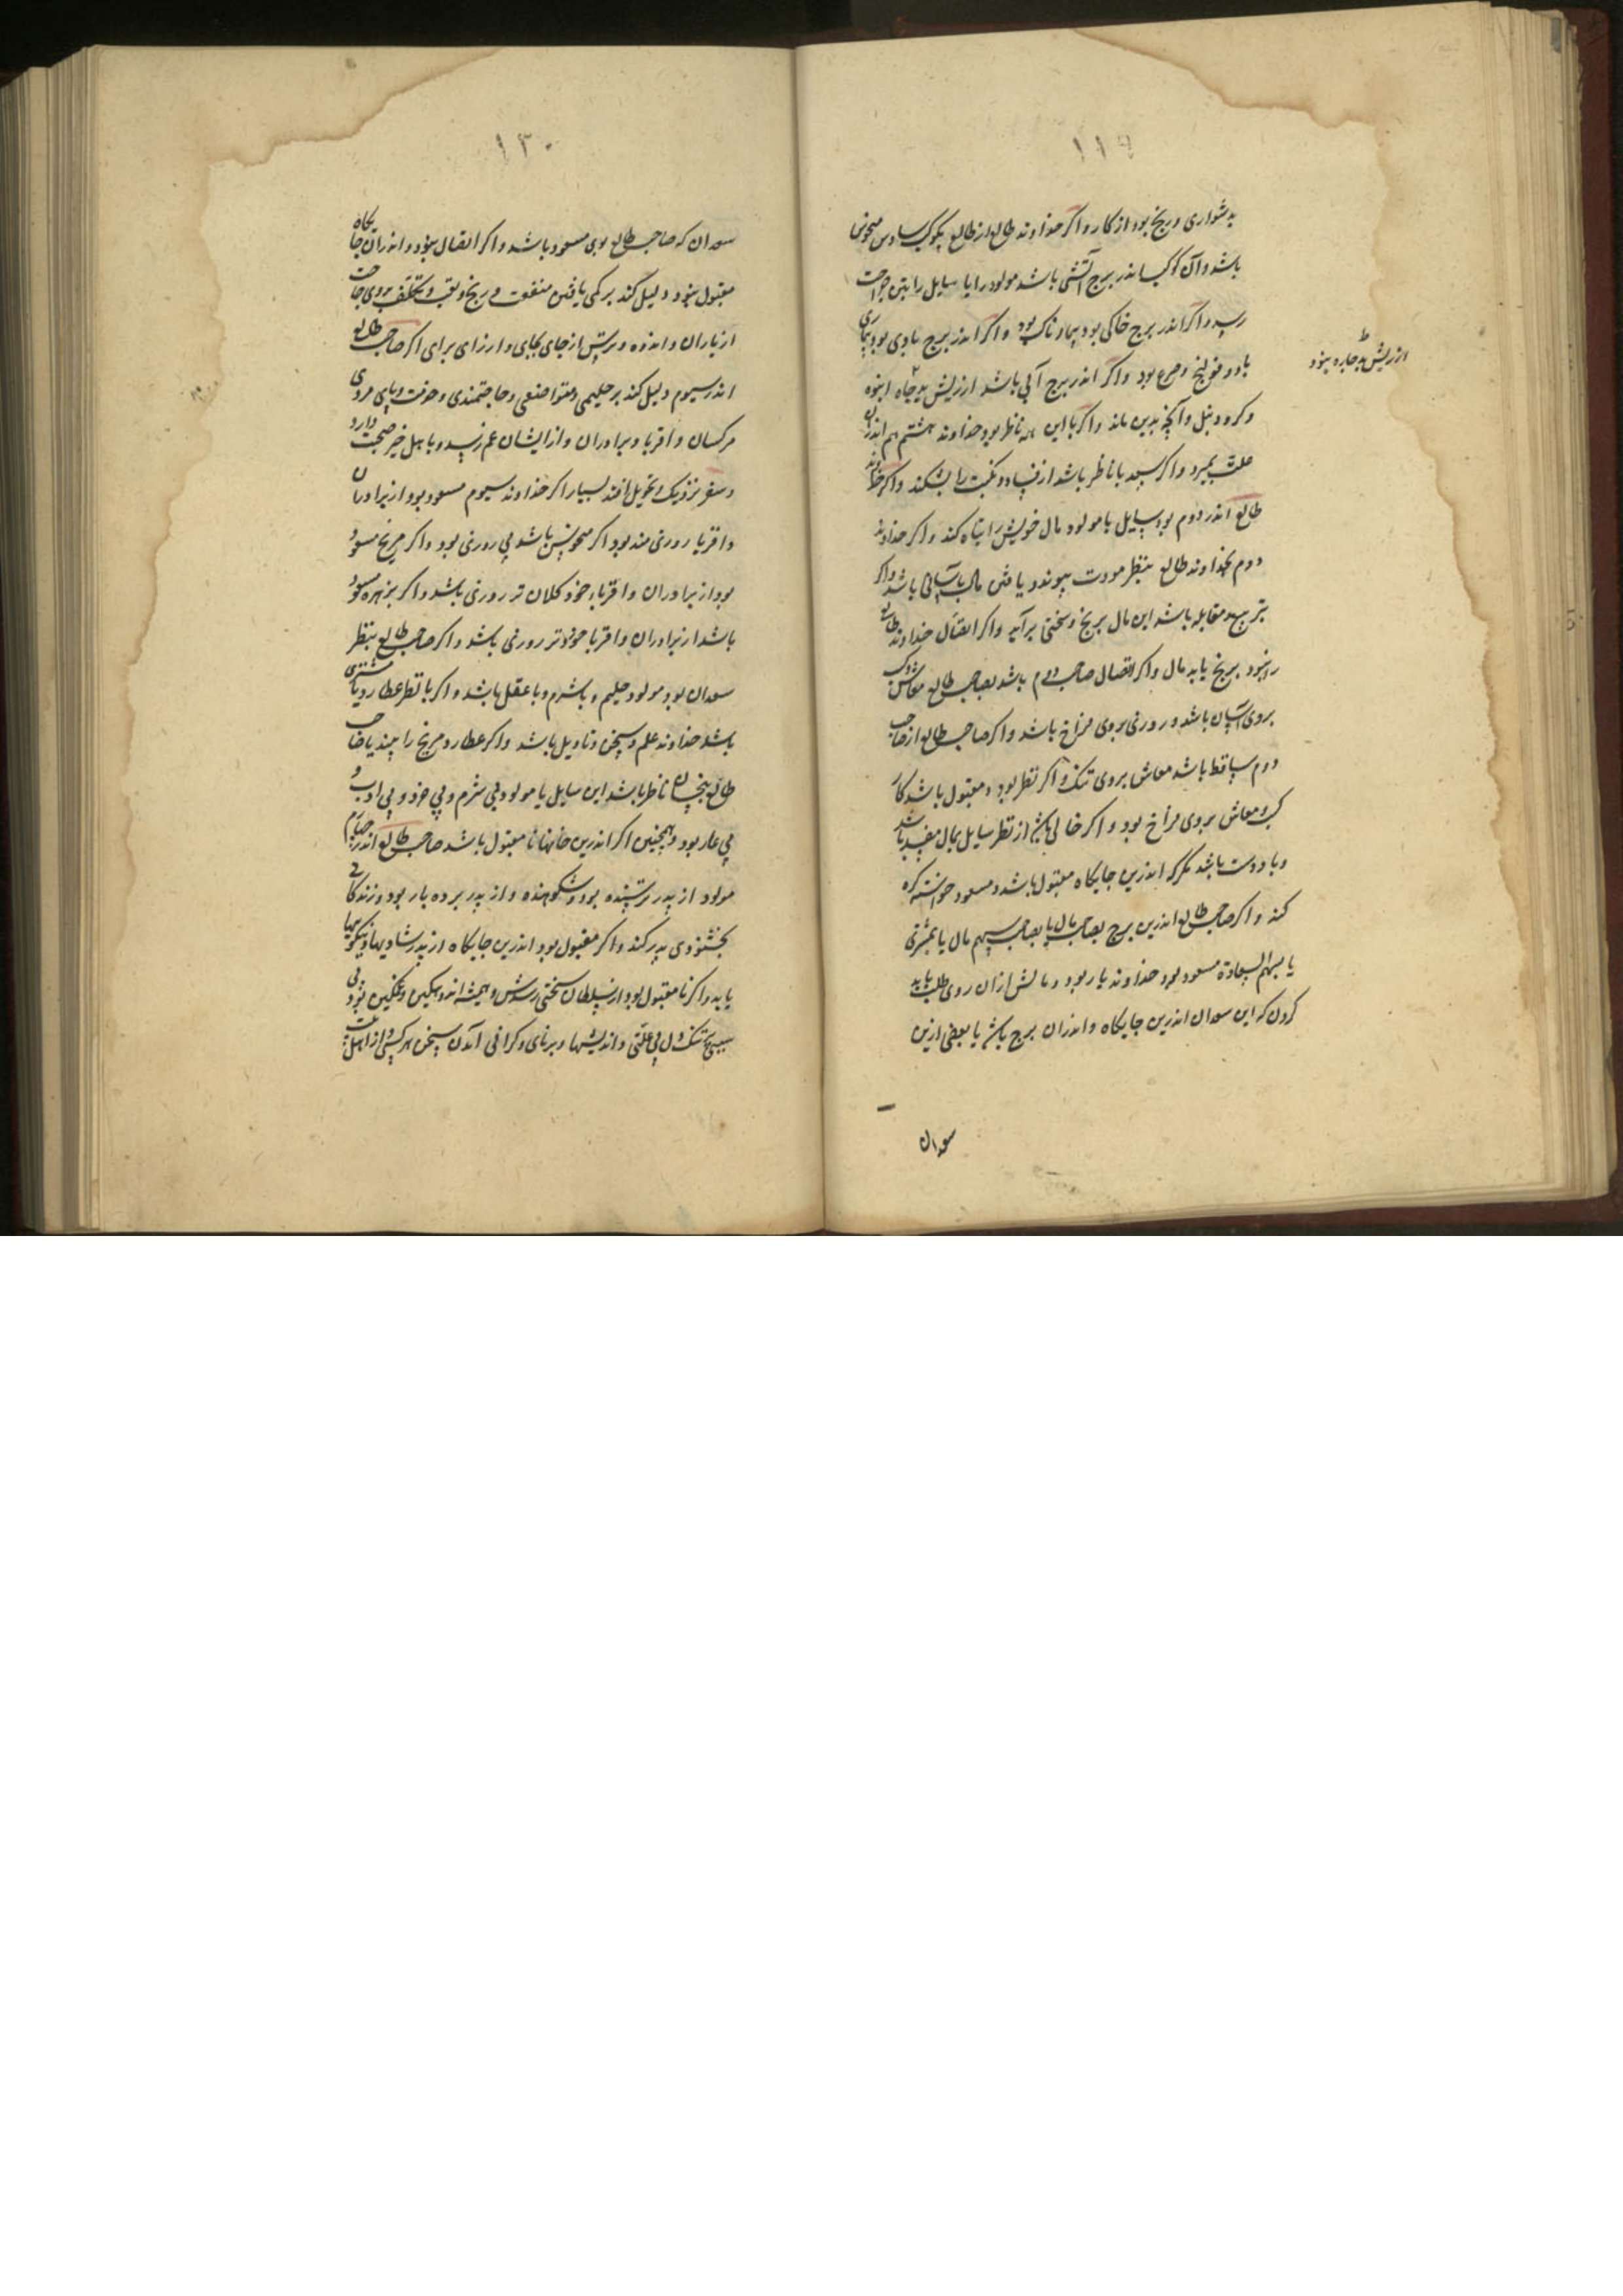 ۱۱۹
بدشواری و رنج بود از کار و اکر خداوند طالع از طالع بکوکب سادس منحوس
باشد و آن کوکب اندر برج آتشی باشد مولود را یا سایل را بتن جراحت
رسد و اکر اندر برج خاکی بود بیمارناک بود و اکر اندر برج بادی بود بیماری
باد و قولنج و صرع بود و اکر اندر برج آبی باشد از ریش بد جاه انبوه
از ریش بد جاره نبود
و کر و دنبل و آنچه بدین ماند و اکر با این همه ناظر بود خداوند هشتم هم اندران
علت بمیرد و اکر سعد با ناظر باشد از فساد و نکبت را بشکند و اکر خداوند
طالع اندر دوم بود سایل یا مولود مال خویش را تباه کند و اکر خداوند
دوم بخداوند طالع بنظر مودت پیوندد یافتن مال بآسانی باشد و اکر
بتربیع و مقابله باشد این مال برنج و سختی برآید و اکر اتصال خداوند طالع
را نبود برنج یابد مال و اکر اتصال صاحب دوم باشد بصاحب طالع معاش
بروی آسان باشد و روزی بروی فراخ باشد و اکر صاحب طالع از صاحب
دوم ساقط باشد معاش بروی تنک و اکر نظر بود و مقبول باشد کار
کسب و معاش بروی فراخ بود و اکر خالی باشد از نظر سایل بمال مفسد باشد
و باد دست باشد مکر که اندرین جایکاه مقبول باشد و مسعود خواسته کرد
کند و اکر صاحب طالع اندرین برج بصاحب مال یا بصاحب سهم مال یا بمشتری
یا بسهم السعادة مسعود بود خداوند یار بود و مالش از آن روی طلب باید
کردن که این سعدان اندرین جایکاه و اندران برج باشد یا بعضی ازین
سعدان
۱۲۰
سعدان که صاحب طالع بوی مسعود باشد و اکر اتصال نبود و اندران جایکاه
مقبول نبود دلیل کند بر کمی یافتن منفعت و رنج و تعب و تکلف بروی حاجت
از یاران و اندوه و ترس از جای بجای و از رای برای اکر صاحب طالع
اندر سیوم دلیل کند بر حلیمی و متواضعی و حاجتمندی و حرفت و پای مردی
مر کسان و اقربا و برادران و از ایشان غم رسد و با اهل خیر صحبت دارد
و سفر نزدیک و تحویل افتد بسیار اکر خداوند سیوم مسعود بود از برادران
و اقربا روزی مند بود اکر منحوس باشد بی روزی بود و اکر مریخ مسعود
بود از برادران و اقرباء خود کلان تر روزی باشد و اکر بزهره مسعود
باشد از برادران و اقربا خوردتر روزی باشد و اکر صاحب طالع بنظر
سعدان بود مولود حلیم و باشرم و با عقل باشد و اکر با نظر عطارد یا مشتری
باشد خداوند علم و سخن و تاویل باشد و اکر عطارد مریخ را بیند یا صاحب
طالع بنحسان ناظر باشد این سایل یا مولود بی شرم و بی خرد و بی ادب و
بی عار بود و همچنین اکر اندرین خانها نامقبول باشد صاحب طالع اندر چهارم
مولود از پدر ترسنده بود و شکوهنده و از پدر بر ده بار بود و زندکانی
بخشنودی پدر کند و اکر مقبول بود اندرین جایکاه از پدر شادیها و نیکوییها
یابد و اکر نامقبول بود از سلطان سختی رسدش و همیشه اندوهکین و غمکین بود بی
سببی تنک دل بی علتی و اندیشها و برنای و کرانی آمدن سخن هر کسی و از اهل بیت